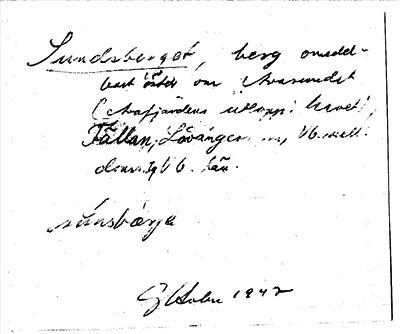 Sundsberget, berg omedel-
bart öster om Avasundet
(Avafjärdens utlopp i havet),
Fällan, Lövångers sn,
län.
súnsbærje
Holm 1942